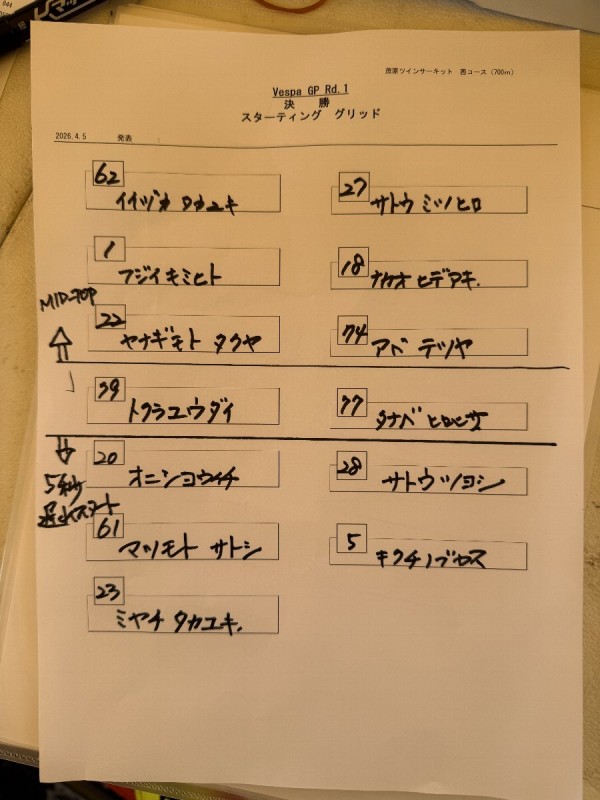 茂原ツインサーキット 西コース (700m)
Vespa GP Rd.1
決 勝
スターティング グリッド
2026.4.5 発表
62
イイヅカ タカユキ
27
サトウ ミツヒロ
1
フジイ キミヒト
18
ナカオ ヒデアキ.
MID-TOP
22
ヤナギモト タクヤ
74
アベ テツヤ
39
トクラユウダイ
77
タナベ ヒロヒサ
20
オニシヨウイチ
28
サトウツヨシ
5秒
遅れスタート
61
マツモト サトシ
5
キクチノブヤス
23
ミヤチ タカユキ.